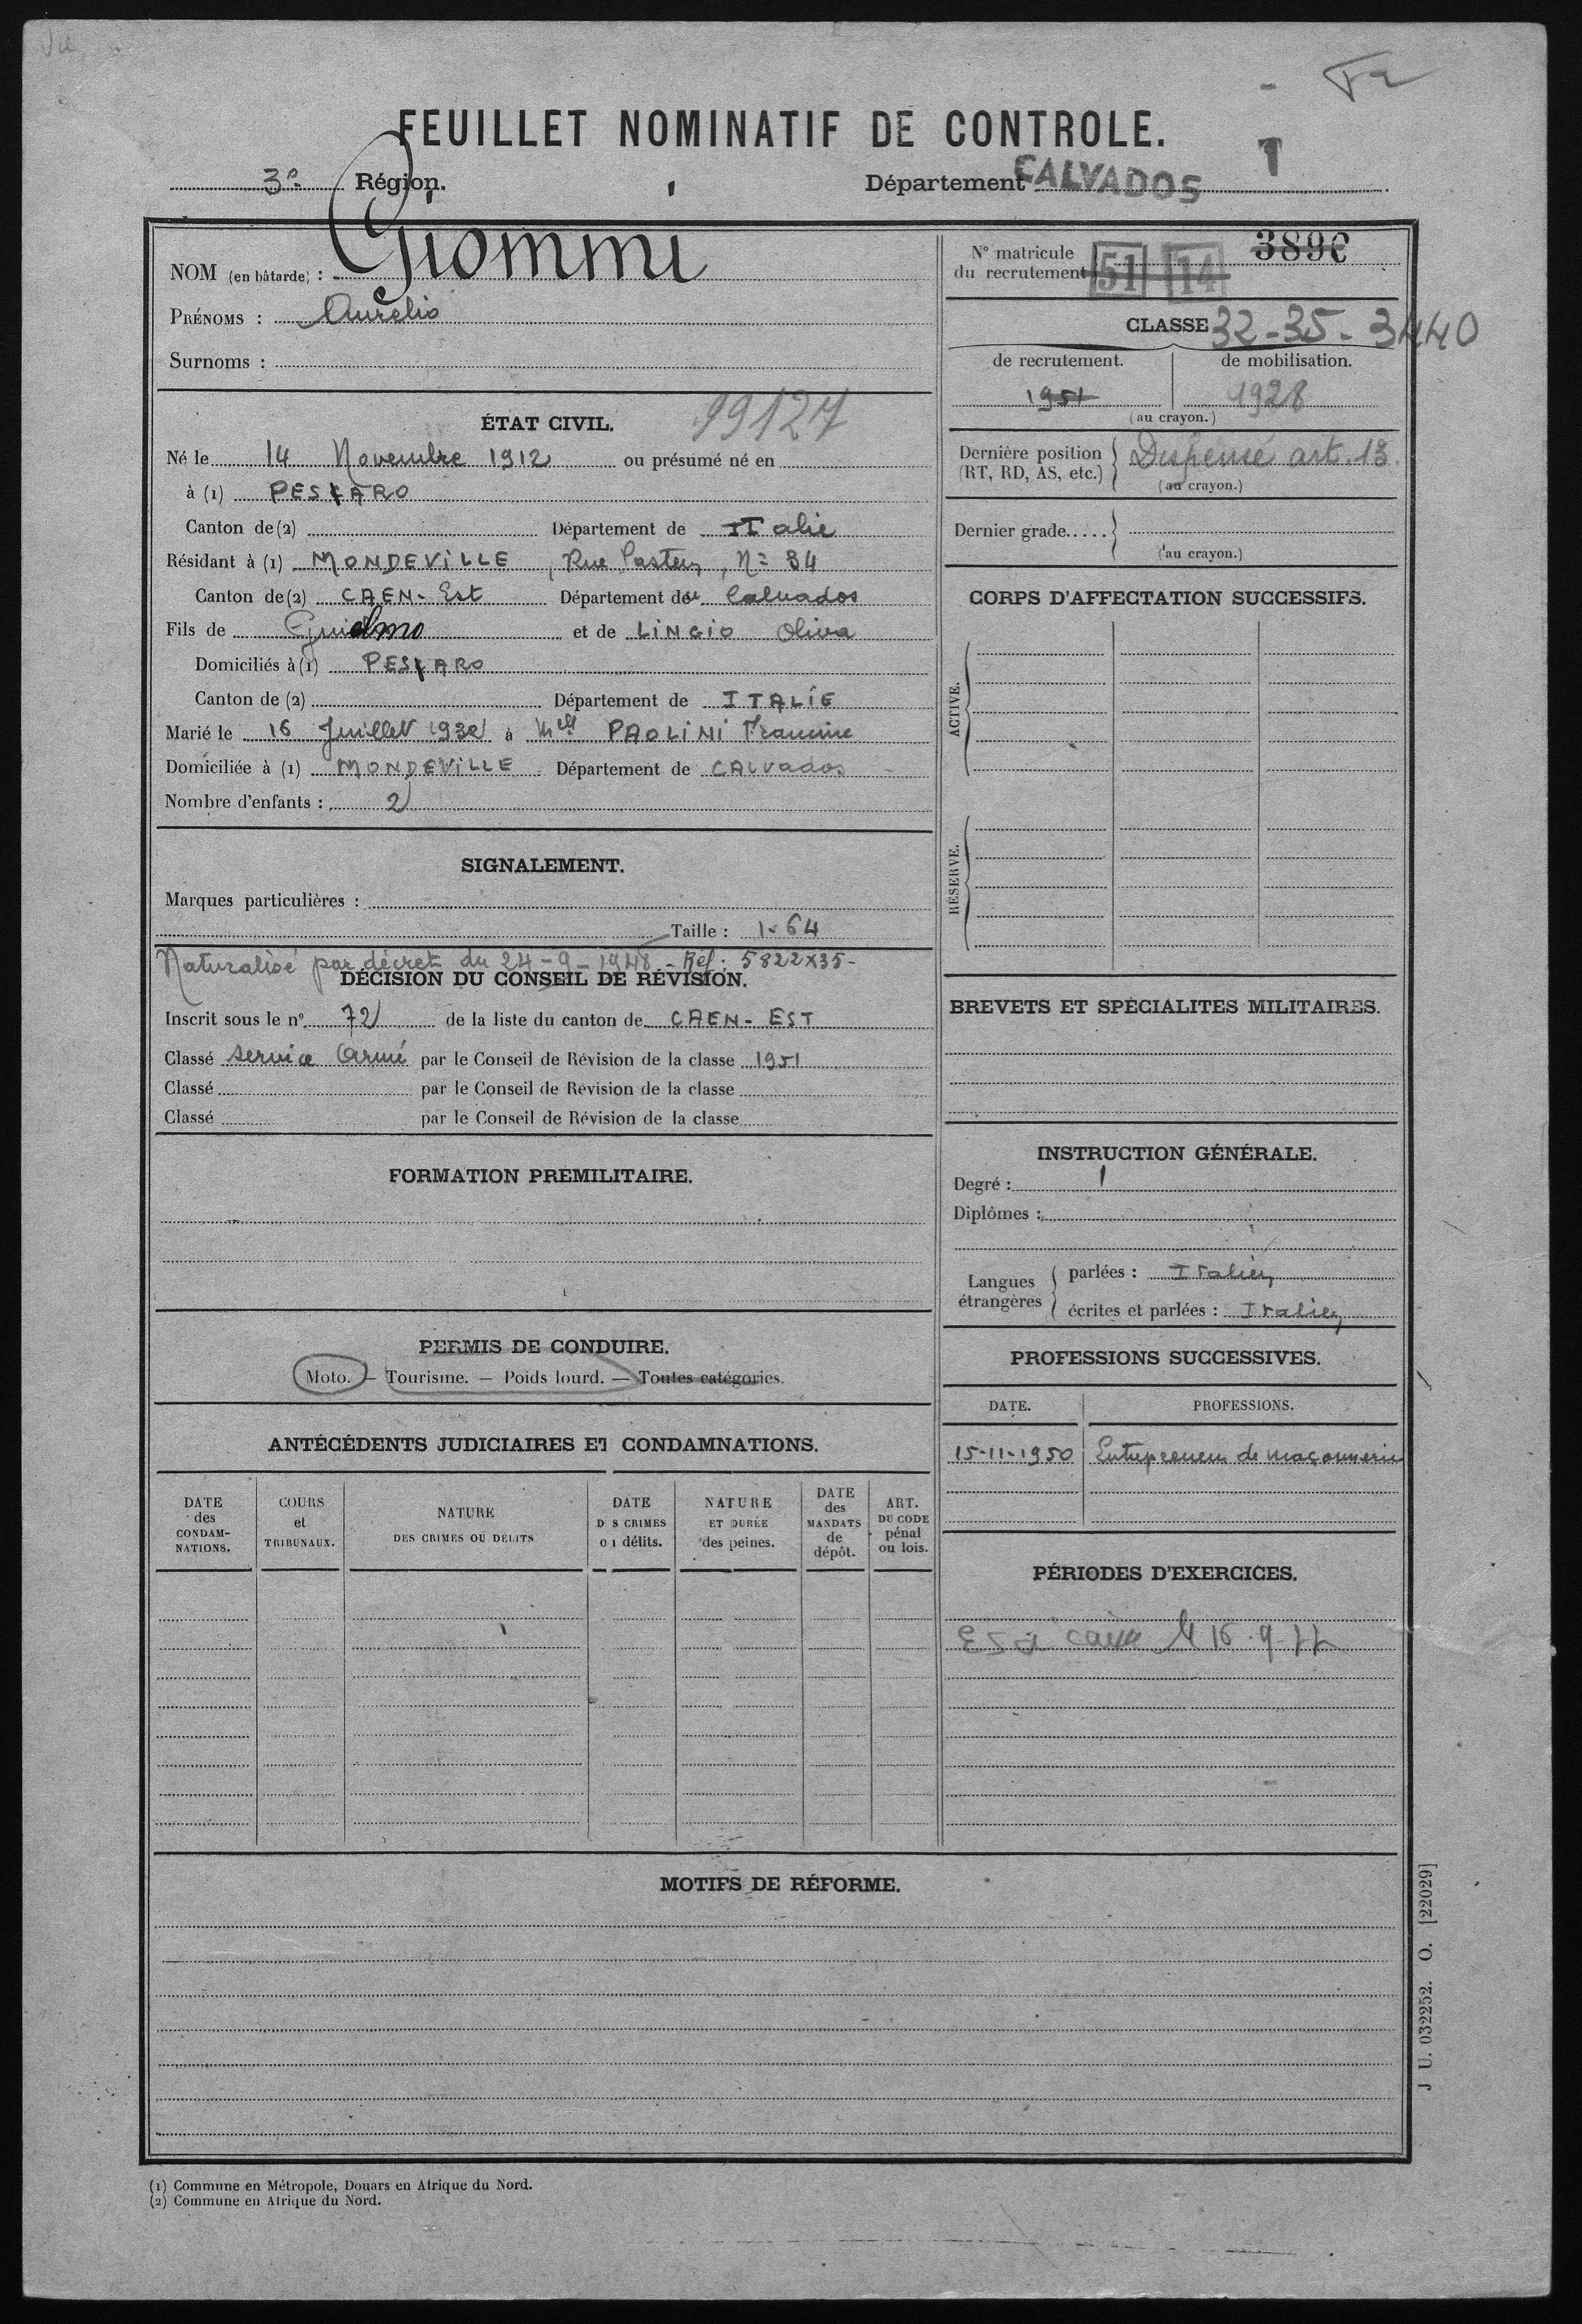 FEUILLET NOMINATIF DE CONTROLE.
3e Région.
Département CALVADOS
1
NOM (en bâtarde) : Giommi
PRÉNOMS : Aurelio
Surnoms :
ÉTAT CIVIL.
19127
Né le 14 Novembre 1912 ou présumé né en
à (1) PESARO
Canton de (2) Département de ITalie
Résidant à (1) MONDEVILLE, Rue Pasteur, N° 34
Canton de (2) CAEN-Est Département du Calvados
Fils de Guidmo et de LINGIO Oliva
Domiciliés à (1) PESARO
Canton de (2) Département de ITALIE
Marié le 16 Juillet 1932 à Melle PAOLINI Francine
Domiciliée à (1) MONDEVILLE Département de CALVados
Nombre d'enfants : 2
SIGNALEMENT.
Marques particulières :
Taille : 1-64
Naturalisé par décret du 24-9-1948 - Réf : 5822x35-
DÉCISION DU CONSEIL DE RÉVISION.
Inscrit sous le n° 72 de la liste du canton de CAEN-EST
Classé service Armé par le Conseil de Révision de la classe 1951
Classé par le Conseil de Révision de la classe
Classé par le Conseil de Révision de la classe
FORMATION PRÉMILITAIRE.
PERMIS DE CONDUIRE.
Moto. — Tourisme. — Poids lourd. — Toutes catégories.
ANTÉCÉDENTS JUDICIAIRES ET CONDAMNATIONS.
DATE des CONDAMNATIONS.
COURS et TRIBUNAUX.
NATURE DES CRIMES OU DÉLITS
DATE DES CRIMES ou délits.
NATURE ET DURÉE des peines.
DATE des MANDATS de dépôt.
ART. DU CODE pénal ou lois.
N° matricule du recrutement 51 14 3890
CLASSE 32-35-3440
de recrutement. de mobilisation.
1951 1928
(au crayon.)
Dernière position (RT, RD, AS, etc.) Dispensé art. 13
(au crayon.)
Dernier grade.....
(au crayon.)
CORPS D'AFFECTATION SUCCESSIFS.
ACTIVE.
RÉSERVE.
BREVETS ET SPÉCIALITÉS MILITAIRES.
INSTRUCTION GÉNÉRALE.
Degré : 1
Diplômes :
Langues étrangères
parlées : Italien
écrites et parlées : Italien
PROFESSIONS SUCCESSIVES.
DATE. PROFESSIONS.
15-11-1950 Entrepreneur de maçonnerie
PÉRIODES D'EXERCICES.
MOTIFS DE RÉFORME.
J. U. 032252. O. [22029]
(1) Commune en Métropole, Douars en Afrique du Nord.
(2) Commune en Afrique du Nord.